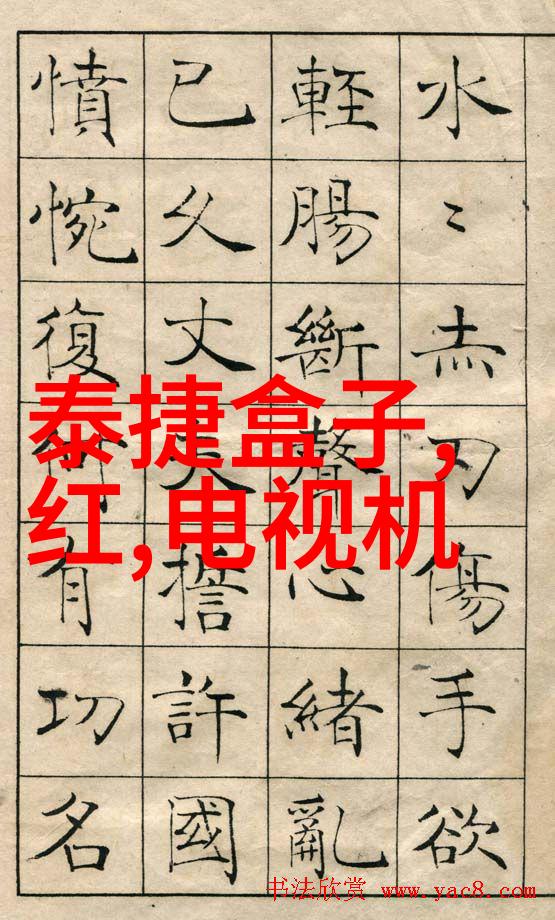 水〻赤刃傷手欲
輕腸斷聲心緒亂
已久丈夫誓許國
憤惋復何有功名
泰捷盒子,
红,电视机
书法欣赏 www.yac8.com